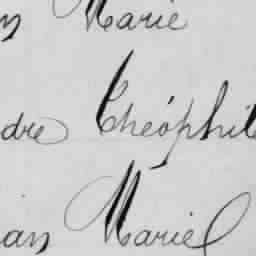 n Marie
dre Théophil
an Marie